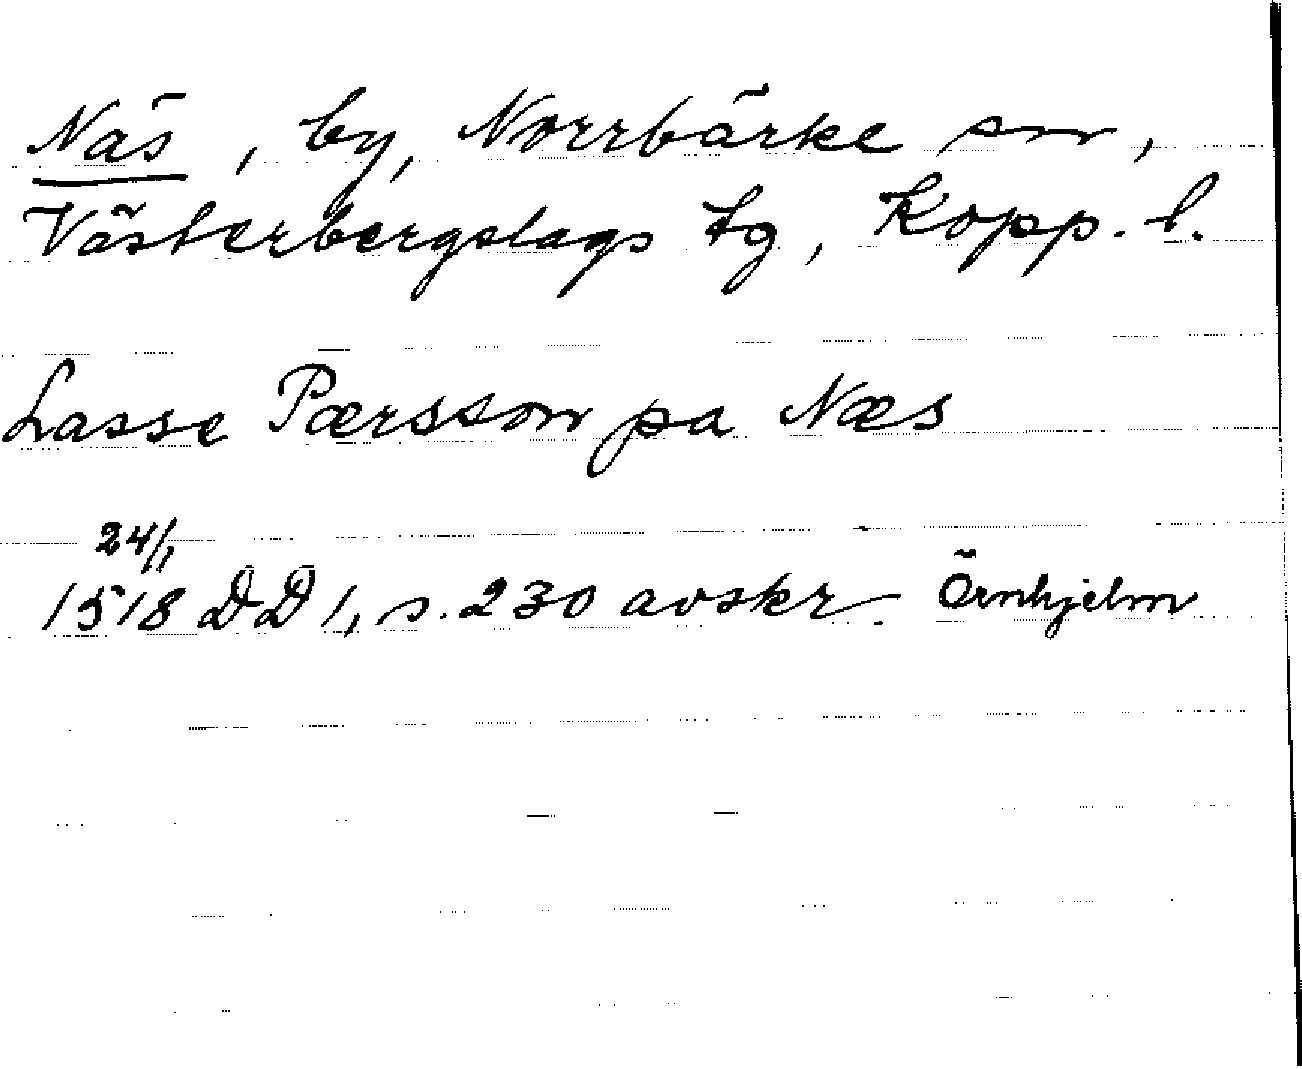 Näs, by, Norrbärke sn,
Västerbergslags tg, Kopp. l.
Lasse Pærsson pa Næs
24/1
1518 DD 1, s. 230 avskr. Örnhjelm